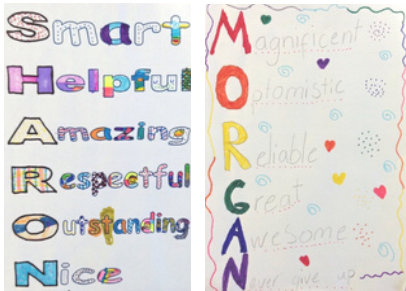 Smart
Helpful
Amazing
Respectful
Outstanding
Nice
Magnificent
Optomistic
Reliable
Great
Awesome
Never give up